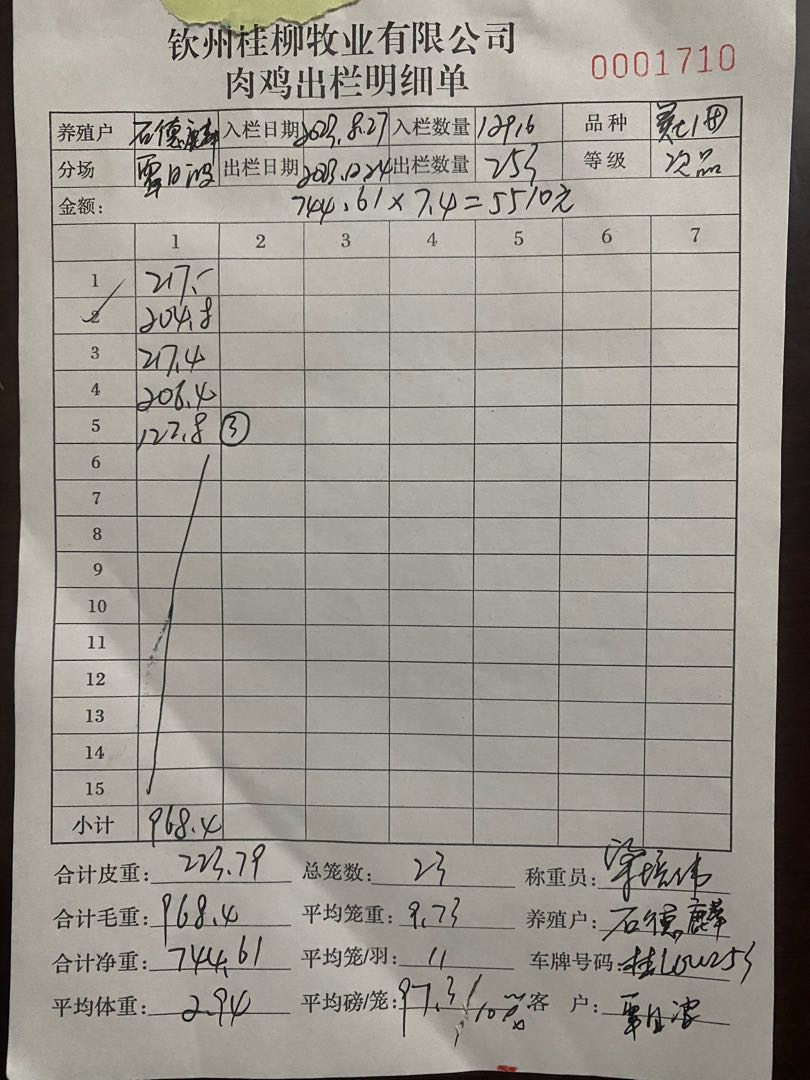 钦州桂柳牧业有限公司
肉鸡出栏明细单
0001710
养殖户 石德麟 入栏日期 2023.8.27 入栏数量 12916 品种
分场 覃日波 出栏日期 2023.12.24 出栏数量 253 等级 次品
金额: 744.61×7.4=5510元
1 2 3 4 5 6 7
1 217.-
2 204.8
3 217.4
4 206.4
5 122.8 ③
6
7
8
9
10
11
12
13
14
15
小计 968.4
合计皮重: 223.79 总笼数: 23 称重员:
合计毛重: 968.4 平均笼重: 9.73 养殖户: 石德麟
合计净重: 744.61 平均笼/羽: 11 车牌号码:
平均体重: 2.94 平均磅/笼: 97.3 客 户: 覃日波